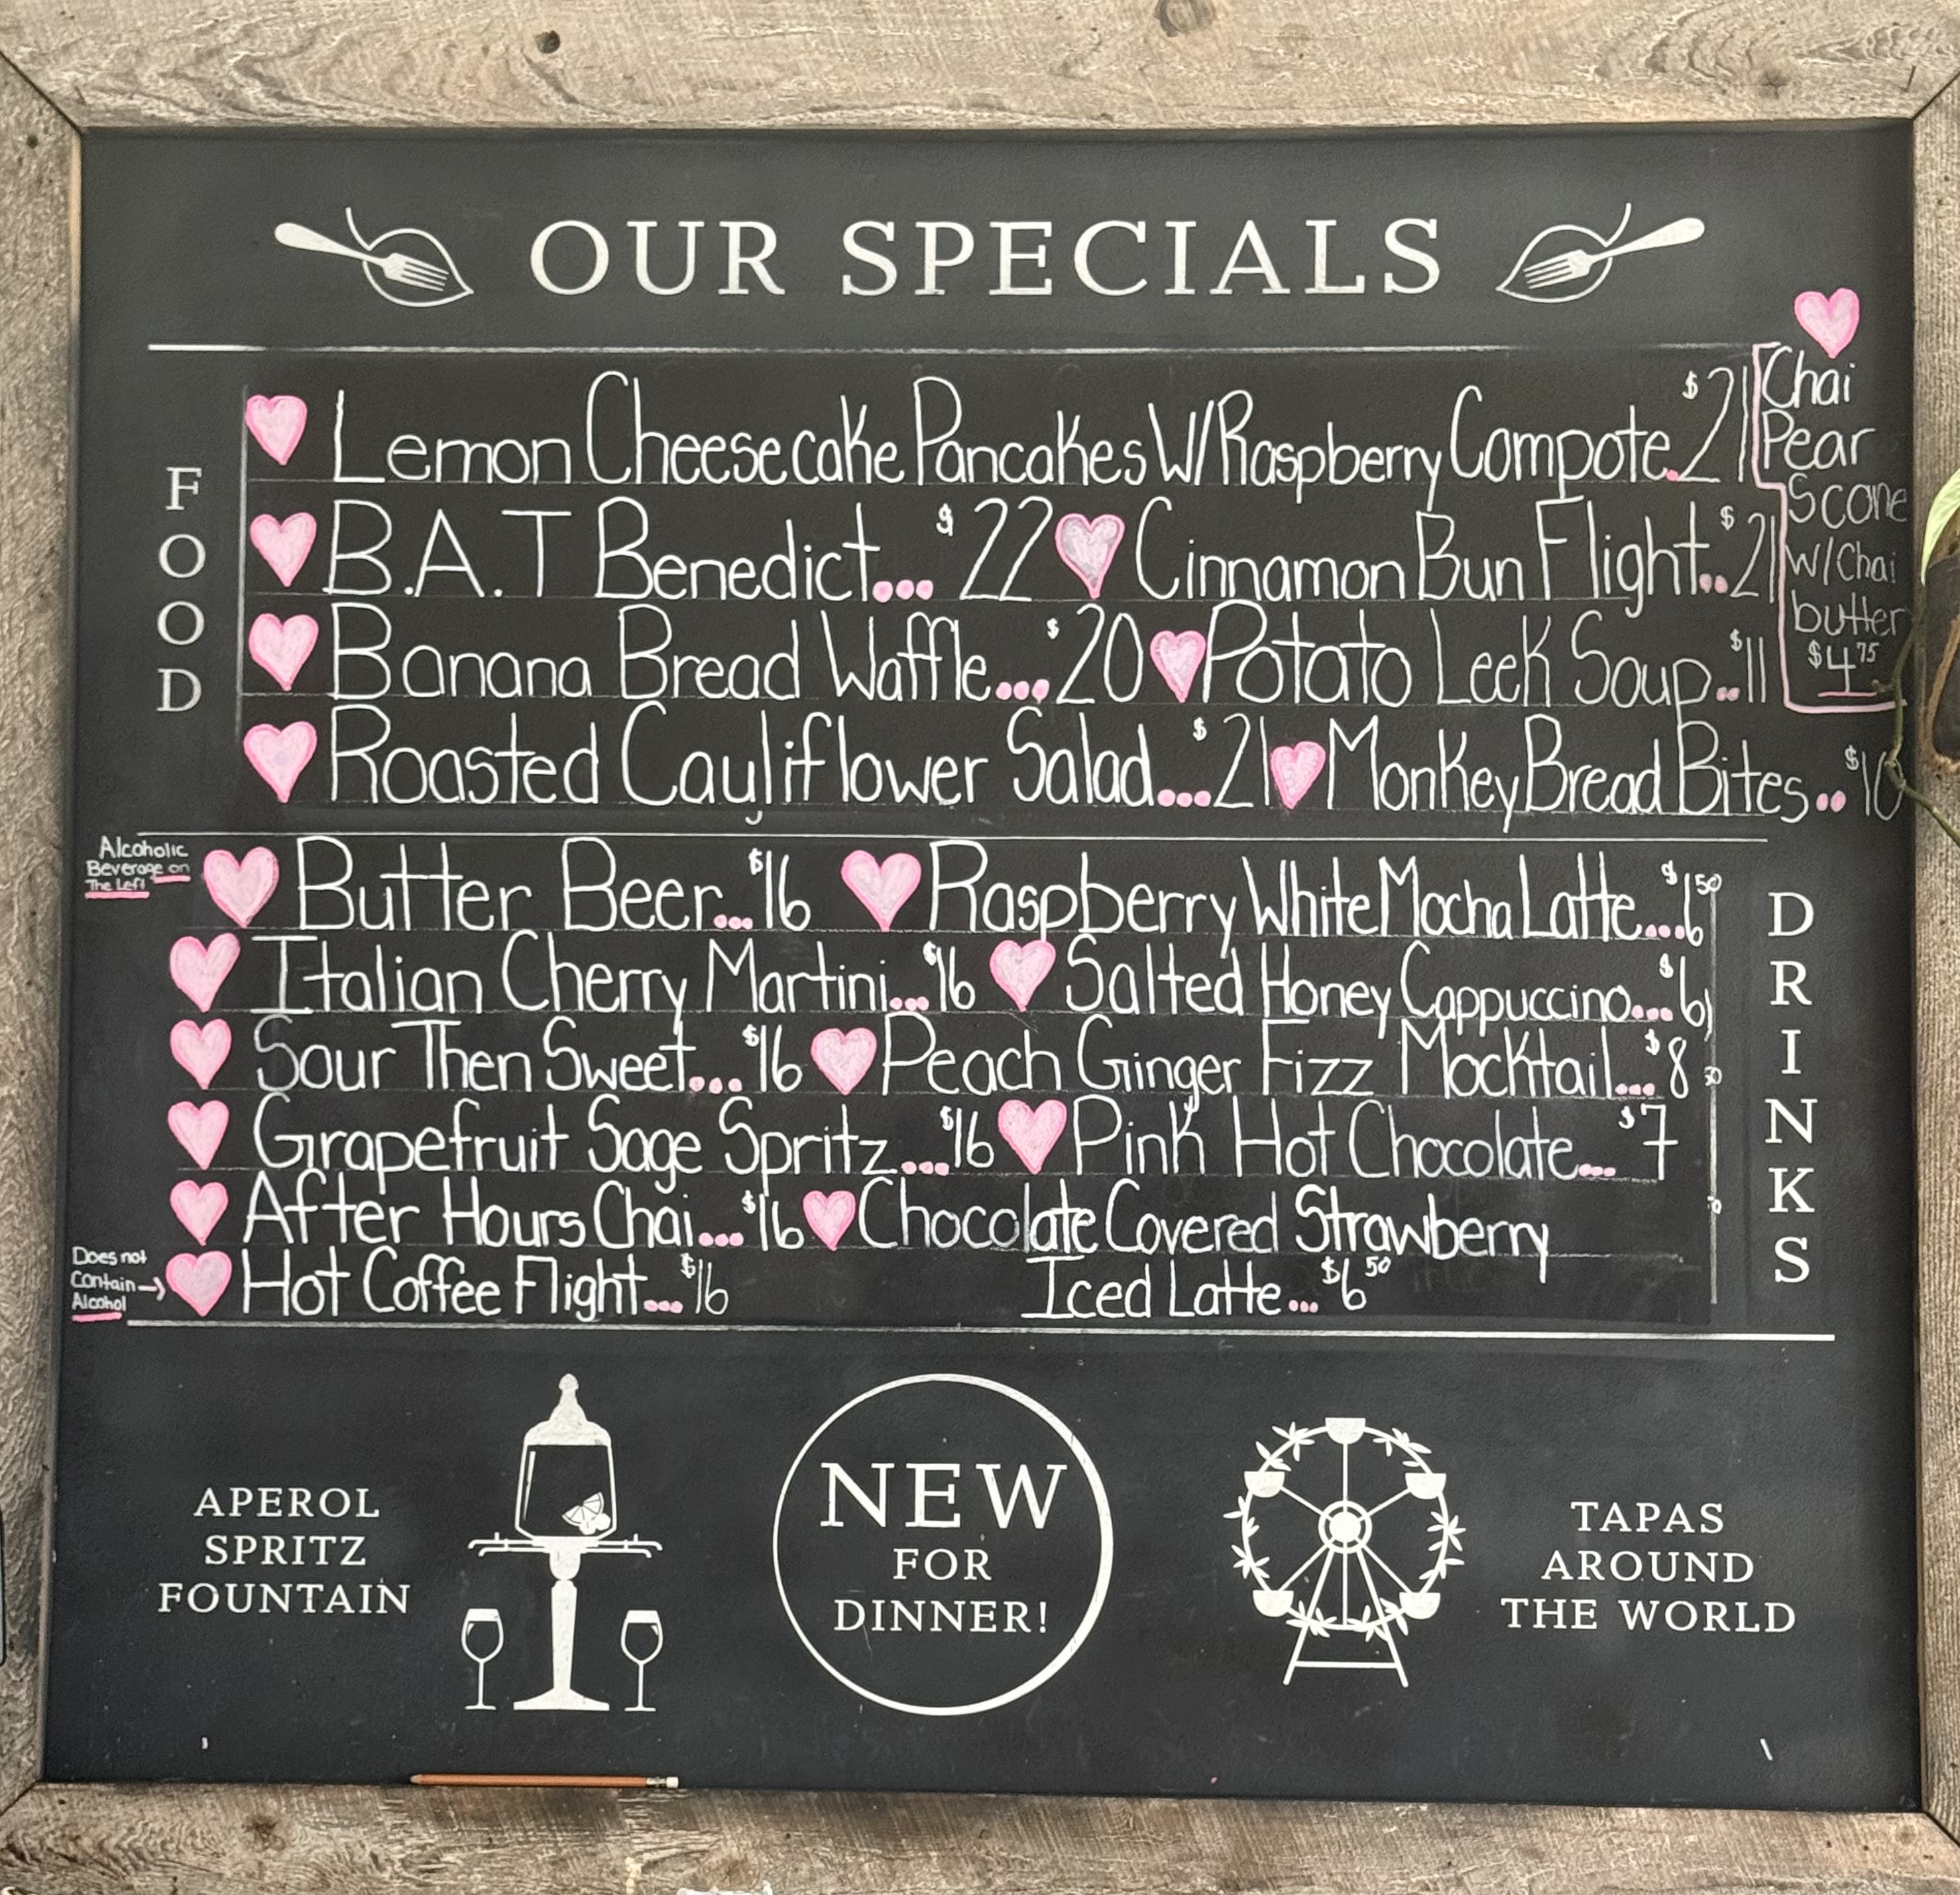 OUR SPECIALS
FOOD
Lemon Cheesecake Pancakes W/Raspberry Compote.$21
B.A.T Benedict...$22 Cinnamon Bun Flight..$21
Banana Bread Waffle...$20 Potato Leek Soup..$11
Roasted Cauliflower Salad...$21 Monkey Bread Bites..$10
Chai
Pear
Scone
w/Chai
butter
$4.75
Alcoholic
Beverage on
The Left
DRINKS
Butter Beer...$16 Raspberry White Mocha Latte...$6.50
Italian Cherry Martini...$16 Salted Honey Cappuccino...$6
Sour Then Sweet...$16 Peach Ginger Fizz Mocktail...$8
Grapefruit Sage Spritz...$16 Pink Hot Chocolate...$7
After Hours Chai...$16 Chocolate Covered Strawberry
Does not
Contain→
Alcohol
Hot Coffee Flight...$16 Iced Latte...$6.50
APEROL
SPRITZ
FOUNTAIN
NEW
FOR
DINNER!
TAPAS
AROUND
THE WORLD